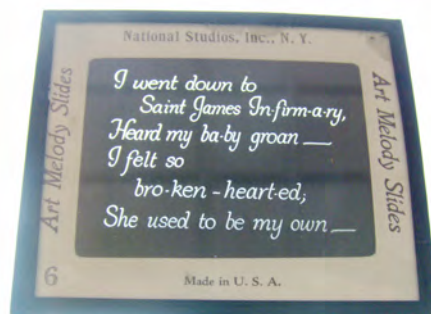 National Studios, Inc., N. Y.
Art Melody Slides
I went down to
Saint James In-firm-a-ry,
Heard my ba-by groan __
I felt so
bro-ken - heart-ed;
She used to be my own __
Art Melody Slides
6
Made in U. S. A.